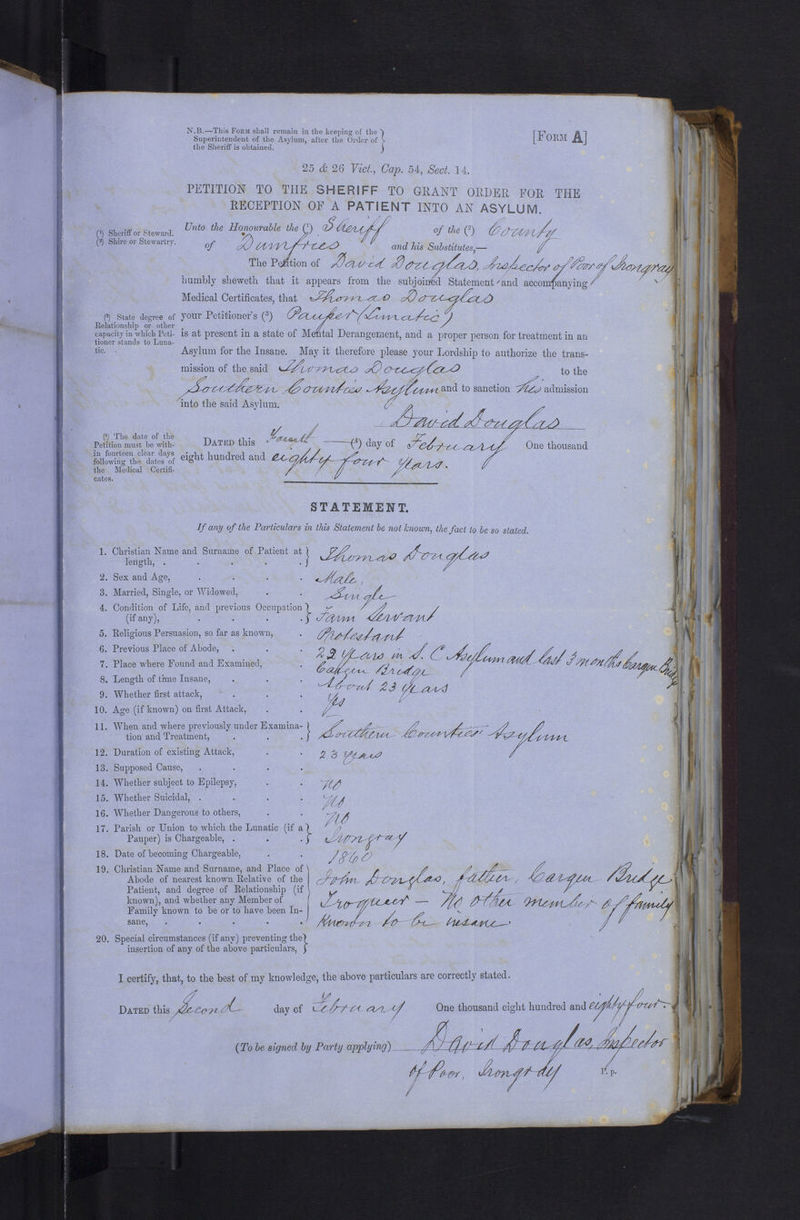 N.B.—This Form shall remain in the keeping of the
Superintendent of the Asylum, after the Order of
the Sheriff is obtained.
[Form A]
25 & 26 Vict., Cap. 54, Sect. 14.
PETITION TO THE SHERIFF TO GRANT ORDER FOR THE
RECEPTION OF A PATIENT INTO AN ASYLUM.
(¹) Sheriff or Steward.
(²) Shire or Stewartry.
Unto the Honourable the (¹) Sheriff of the (²) County
of Dumfries and his Substitutes,—
The Petition of David Douglas, Inspector of Poor of Irongray
humbly sheweth that it appears from the subjoined Statement and accompanying
Medical Certificates, that Thomas Douglas
(³) State degree of
Relationship or other
capacity in which Peti-
tioner stands to Luna-
tic.
your Petitioner's (³) Pauper (Lunatic)
is at present in a state of Mental Derangement, and a proper person for treatment in an
Asylum for the Insane. May it therefore please your Lordship to authorize the trans-
mission of the said Thomas Douglas to the
Southern Counties Asylum and to sanction his admission
into the said Asylum.
David Douglas
(⁴) The date of the
Petition must be with-
in fourteen clear days
following the dates of
the Medical Certifi-
cates.
Dated this Fourth (⁴) day of February One thousand
eight hundred and eighty four years.
STATEMENT.
If any of the Particulars in this Statement be not known, the fact to be so stated.
1. Christian Name and Surname of Patient at
length, . . . . . Thomas Douglas
2. Sex and Age, . . . . Male,
3. Married, Single, or Widowed, . . Single
4. Condition of Life, and previous Occupation
(if any), . . . . . Farm Servant
5. Religious Persuasion, so far as known, . Protestant
6. Previous Place of Abode, . . . 22 years in S. C Asylum and last 3 months Cargen Bridge
7. Place where Found and Examined, . Cargen Bridge
8. Length of time Insane, . . . About 23 years
9. Whether first attack, . . . . Yes
10. Age (if known) on first Attack, . .
11. When and where previously under Examina-
tion and Treatment, . . . . Southern Counties Asylum
12. Duration of existing Attack, . . 23 years
13. Supposed Cause, . . . .
14. Whether subject to Epilepsy, . . no
15. Whether Suicidal, . . . . no
16. Whether Dangerous to others, . . no
17. Parish or Union to which the Lunatic (if a
Pauper) is Chargeable, . . . Irongray
18. Date of becoming Chargeable, . . 1860
19. Christian Name and Surname, and Place of
Abode of nearest known Relative of the
Patient, and degree of Relationship (if
known), and whether any Member of
Family known to be or to have been In-
sane, . . . . . .
John Douglas, father, Cargen Bridge
Troqueer — No other member of family
known to be insane
20. Special circumstances (if any) preventing the
insertion of any of the above particulars,
I certify, that, to the best of my knowledge, the above particulars are correctly stated.
Dated this Second day of February One thousand eight hundred and eighty four.
(To be signed by Party applying) David Douglas, Inspector
of Poor, Irongray P.p.